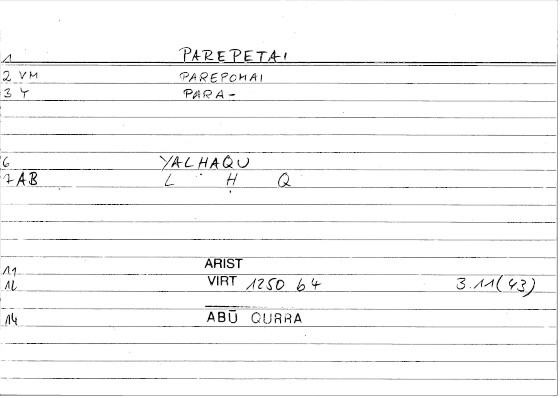 1 PAREPETAI
2 VM PAREPOMAI
3 Y PARA-
6 YALḤAQU
7 AB L Ḥ Q
11 ARIST
12 VIRT 1250 b4 3.11(43)
14 ABŪ QURRA